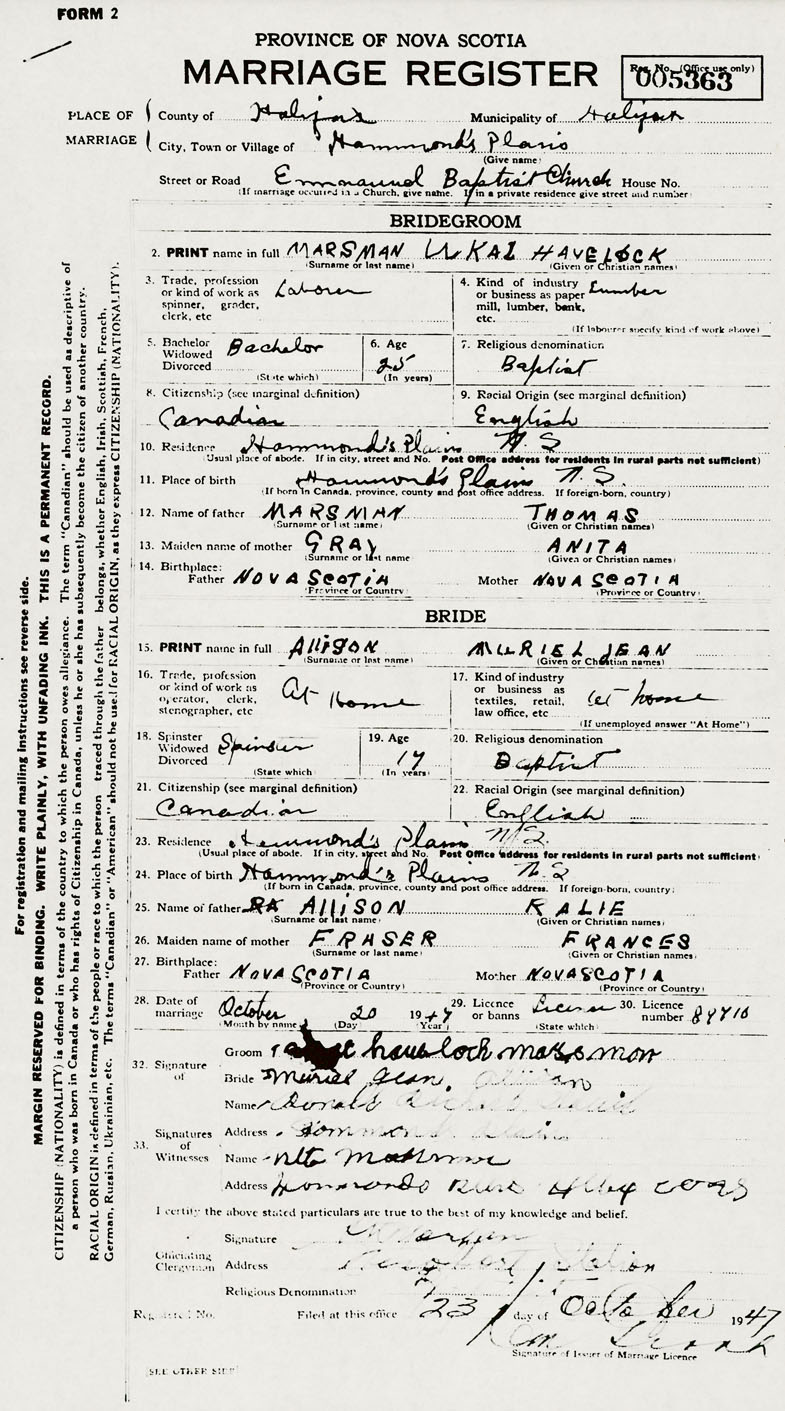 FORM 2
PROVINCE OF NOVA SCOTIA
MARRIAGE REGISTER
Reg. No. (Office use only)
005363
PLACE OF MARRIAGE
County of Halifax Municipality of Halifax
City, Town or Village of Hammond's Plains
(Give name)
Street or Road Emmanuel Baptist Church House No.
(If marriage occurred in a Church, give name. If in a private residence give street and number)
BRIDEGROOM
2. PRINT name in full MARSMAN HAVELOCK
(Surname or last name) (Given or Christian names)
3. Trade, profession or kind of work as spinner, grader, clerk, etc Laborer
4. Kind of industry or business as paper mill, lumber, bank, etc. Lumber
(If labourer specify kind of work above)
5. Bachelor Widowed Divorced Bachelor
(State which)
6. Age 25
(In years)
7. Religious denomination
Baptist
8. Citizenship (see marginal definition)
Canadian
9. Racial Origin (see marginal definition)
English
10. Residence Hammond's Plains N.S
(Usual place of abode. If in city, street and No. Post Office address for residents in rural parts not sufficient)
11. Place of birth Hammond's Plains N.S.
(If born in Canada, province, county and post office address. If foreign-born, country)
12. Name of father MARSMAN THOMAS
(Surname or last name) (Given or Christian names)
13. Maiden name of mother GRAY ANITA
(Surname or last name) (Given or Christian names)
14. Birthplace:
Father NOVA SCOTIA Mother NOVA SCOTIA
(Province or Country) (Province or Country)
BRIDE
15. PRINT name in full ALLISON MURIEL JEAN
(Surname or last name) (Given or Christian names)
16. Trade, profession or kind of work as operator, clerk, stenographer, etc At Home
17. Kind of industry or business as textiles, retail, law office, etc at home
(If unemployed answer "At Home")
18. Spinster Widowed Divorced Spinster
(State which)
19. Age
(In years)
20. Religious denomination
Baptist
21. Citizenship (see marginal definition)
Canadian
22. Racial Origin (see marginal definition)
English
23. Residence Hammond's Plains N.S.
(Usual place of abode. If in city, street and No. Post Office address for residents in rural parts not sufficient)
24. Place of birth Hammond's Plains N.S
(If born in Canada, province, county and post office address. If foreign-born, country)
25. Name of father ALLISON KALIE
(Surname or last name) (Given or Christian names)
26. Maiden name of mother FRASER FRANCES
(Surname or last name) (Given or Christian names)
27. Birthplace:
Father NOVA SCOTIA Mother NOVA SCOTIA
(Province or Country) (Province or Country)
28. Date of marriage October 20 1947
(Month by name) (Day) (Year)
29. Licence or banns License
(State which)
30. Licence number
32. Signature of
Groom
Bride Muriel Jean Allison
33. Signatures of Witnesses
Name Donald
Address Hammonds Plains
Name
Address
I certify the above stated particulars are true to the best of my knowledge and belief.
Officiating Clergyman
Signature
Address Station
Religious Denomination
Registered No. Filed at this office 23 day of October 1947
Signature of Issuer of Marriage Licence
[SEE OTHER SIDE]
For registration and mailing instructions see reverse side.
MARGIN RESERVED FOR BINDING. WRITE PLAINLY, WITH UNFADING INK. THIS IS A PERMANENT RECORD.
CITIZENSHIP (NATIONALITY) is defined in terms of the country to which the person owes allegiance. The term "Canadian" should be used as descriptive of
a person who was born in Canada or who has rights of Citizenship in Canada, unless he or she has subsequently become the citizen of another country.
RACIAL ORIGIN is defined in terms of the people or race to which the person traced through the father belongs, whether English, Irish, Scottish, French,
German, Russian, Ukrainian, etc. The terms "Canadian" or "American" should not be used for RACIAL ORIGIN, as they express CITIZENSHIP (NATIONALITY).